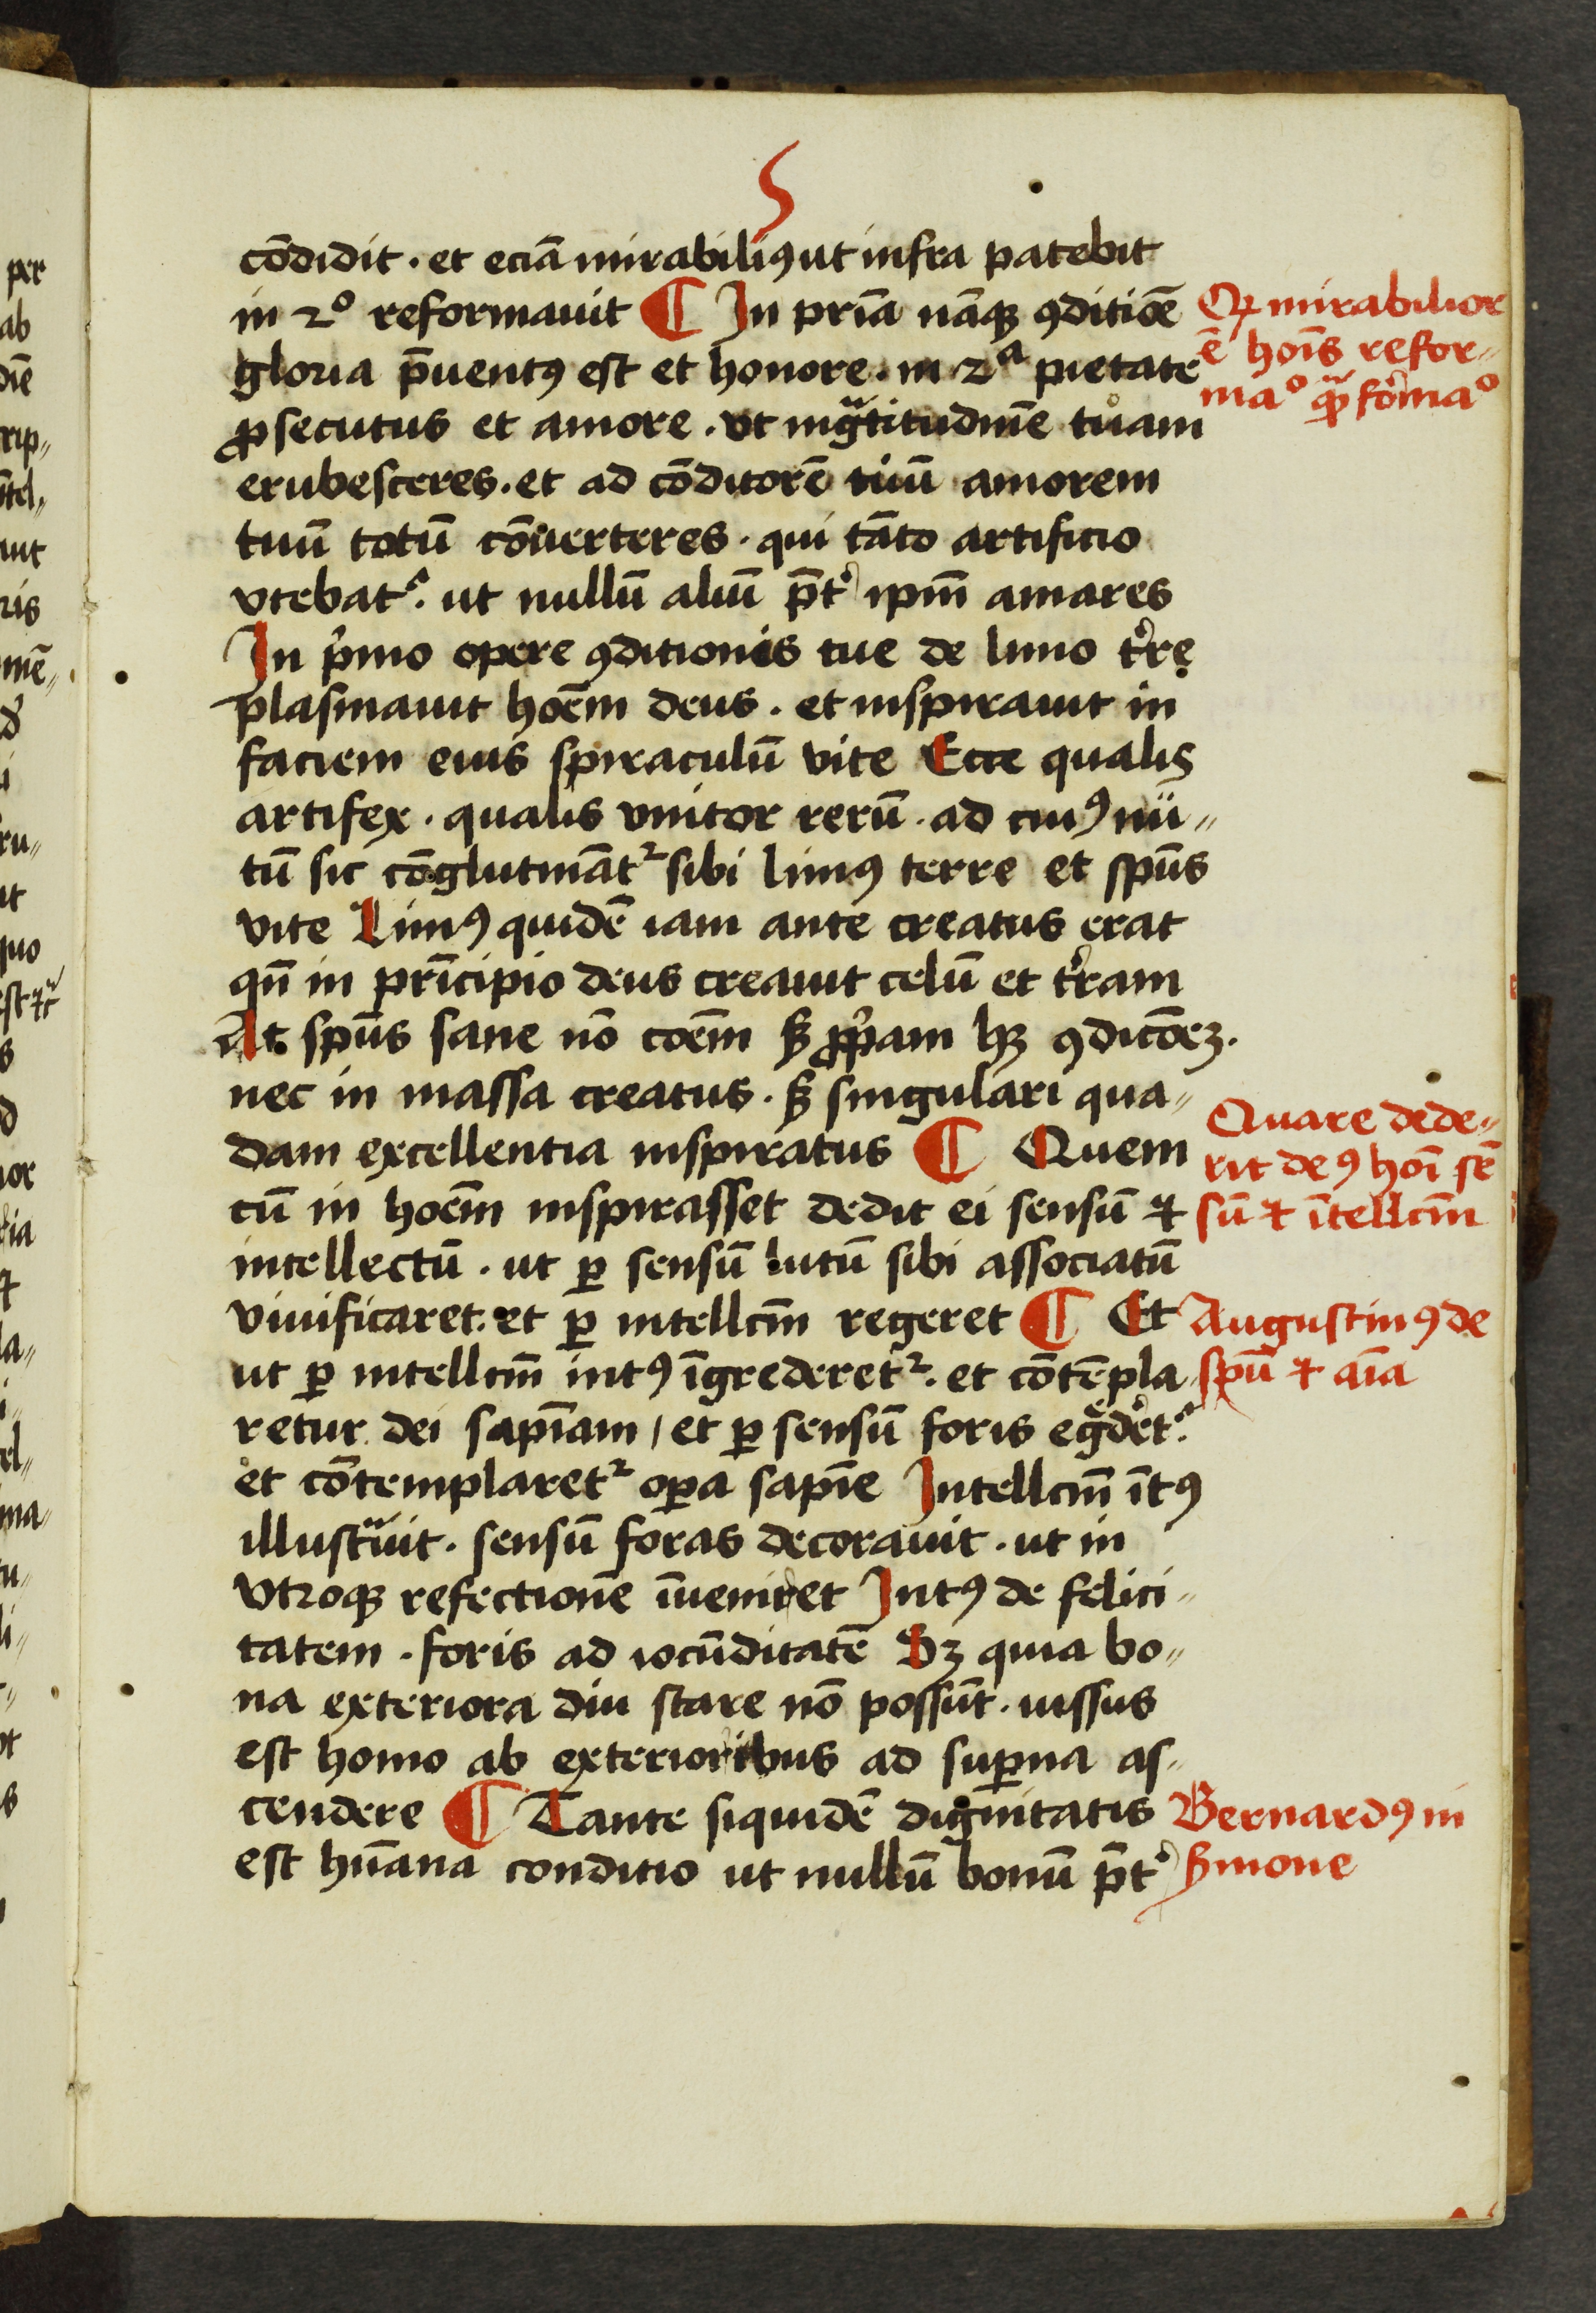 5
cōdidit · et eciā mirabiliꝰ ut infra patebit
in 2º reformauit ¶ In prīa nāqꝫ ꝯditiōe
gloria p̄uentꝰ est et honore · in 2ª pietate
ꝓsecutus et amore · vt ingᵃtitudinē tuam
erubesceres · et ad cōditorē tuū amorem
tuū totū cōuerteres · qui tāto artificio
vtebatᷣ · ut nullū aliū p̄tᷣ ip̄m amares
In pᷣmo opere ꝯditionis tue de limo tᷣrę
plasmauit hoēm deus · et inspirauit in
faciem eius spiraculū vite Ecce qualis
artifex · qualis vnitor rerū · ad cuiꝰ nu〃
tū sic cōglutināt² sibi limꝰ terre et spūs
vite Limꝰ quidē iam ante creatus erat
qn̄ in prīcipio deus creauit celū et tᷣram
At spūs sane nō coēm sꝫ ꝓpᷣam hꝫ ꝯdicōeꝫ ·
nec in massa creatus · sꝫ singulari qua〃
dam excellentia inspiratus ¶ Quem
cū in hoēm inspirasset dedit ei sensū ⁊
intellectū · ut ꝑ sensū lutū sibi associatū
viuificaret · et ꝑ intellcm̄ regeret ¶ Et
ut ꝑ intellcm̄ intꝰ īgrederet² · et cōtēpla
retur dei sapīam / et ꝑ sensū foris egᵉdᷣetᷣ
et cōtemplaret² oꝑa sapīe Intellcm̄ ītꝰ
illustᵃuit · sensū foras decorauit · ut in
vtroqꝫ refectionē īueniret Intꝰ de felici〃
tatem · foris ad iocūditatē Sꝫ quia bo〃
na exteriora diu stare nō possūt · iussus
est homo ab exterioribus ad suꝑna as〃
cendere ¶ Tante siquidē dignitatis
est hūana conditio ut nullū bonū p̄tᷣ
Qꝙ mirabilior
ē hoīs refor〃
maº qᵃꝫ foᷣmaº
Quare dede〃
rit deꝰ hoī sē
sū ⁊ ītellcm̄
Augustinꝰ de
spū ⁊ aīa
Bernardꝰ in
sᷣmone